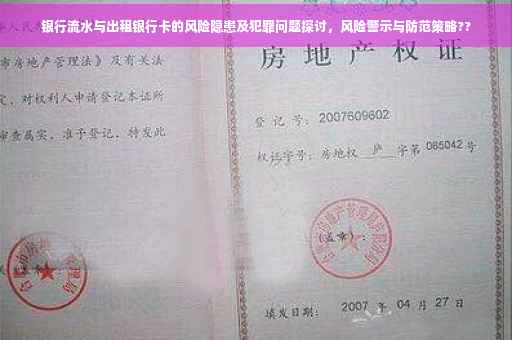 银行流水与出租银行卡的风险隐患及犯罪问题探讨，风险警示与防范策略??
市房地产管理法》及有关法
定，对权利人申请登记本证所
审查属实，准予登记，特发此
房地产权证
登记号：2007609602
权证字号：房地权 庐 字第 085042 号
(盖章)：
填发日期： 2007 年 04 月 27 日